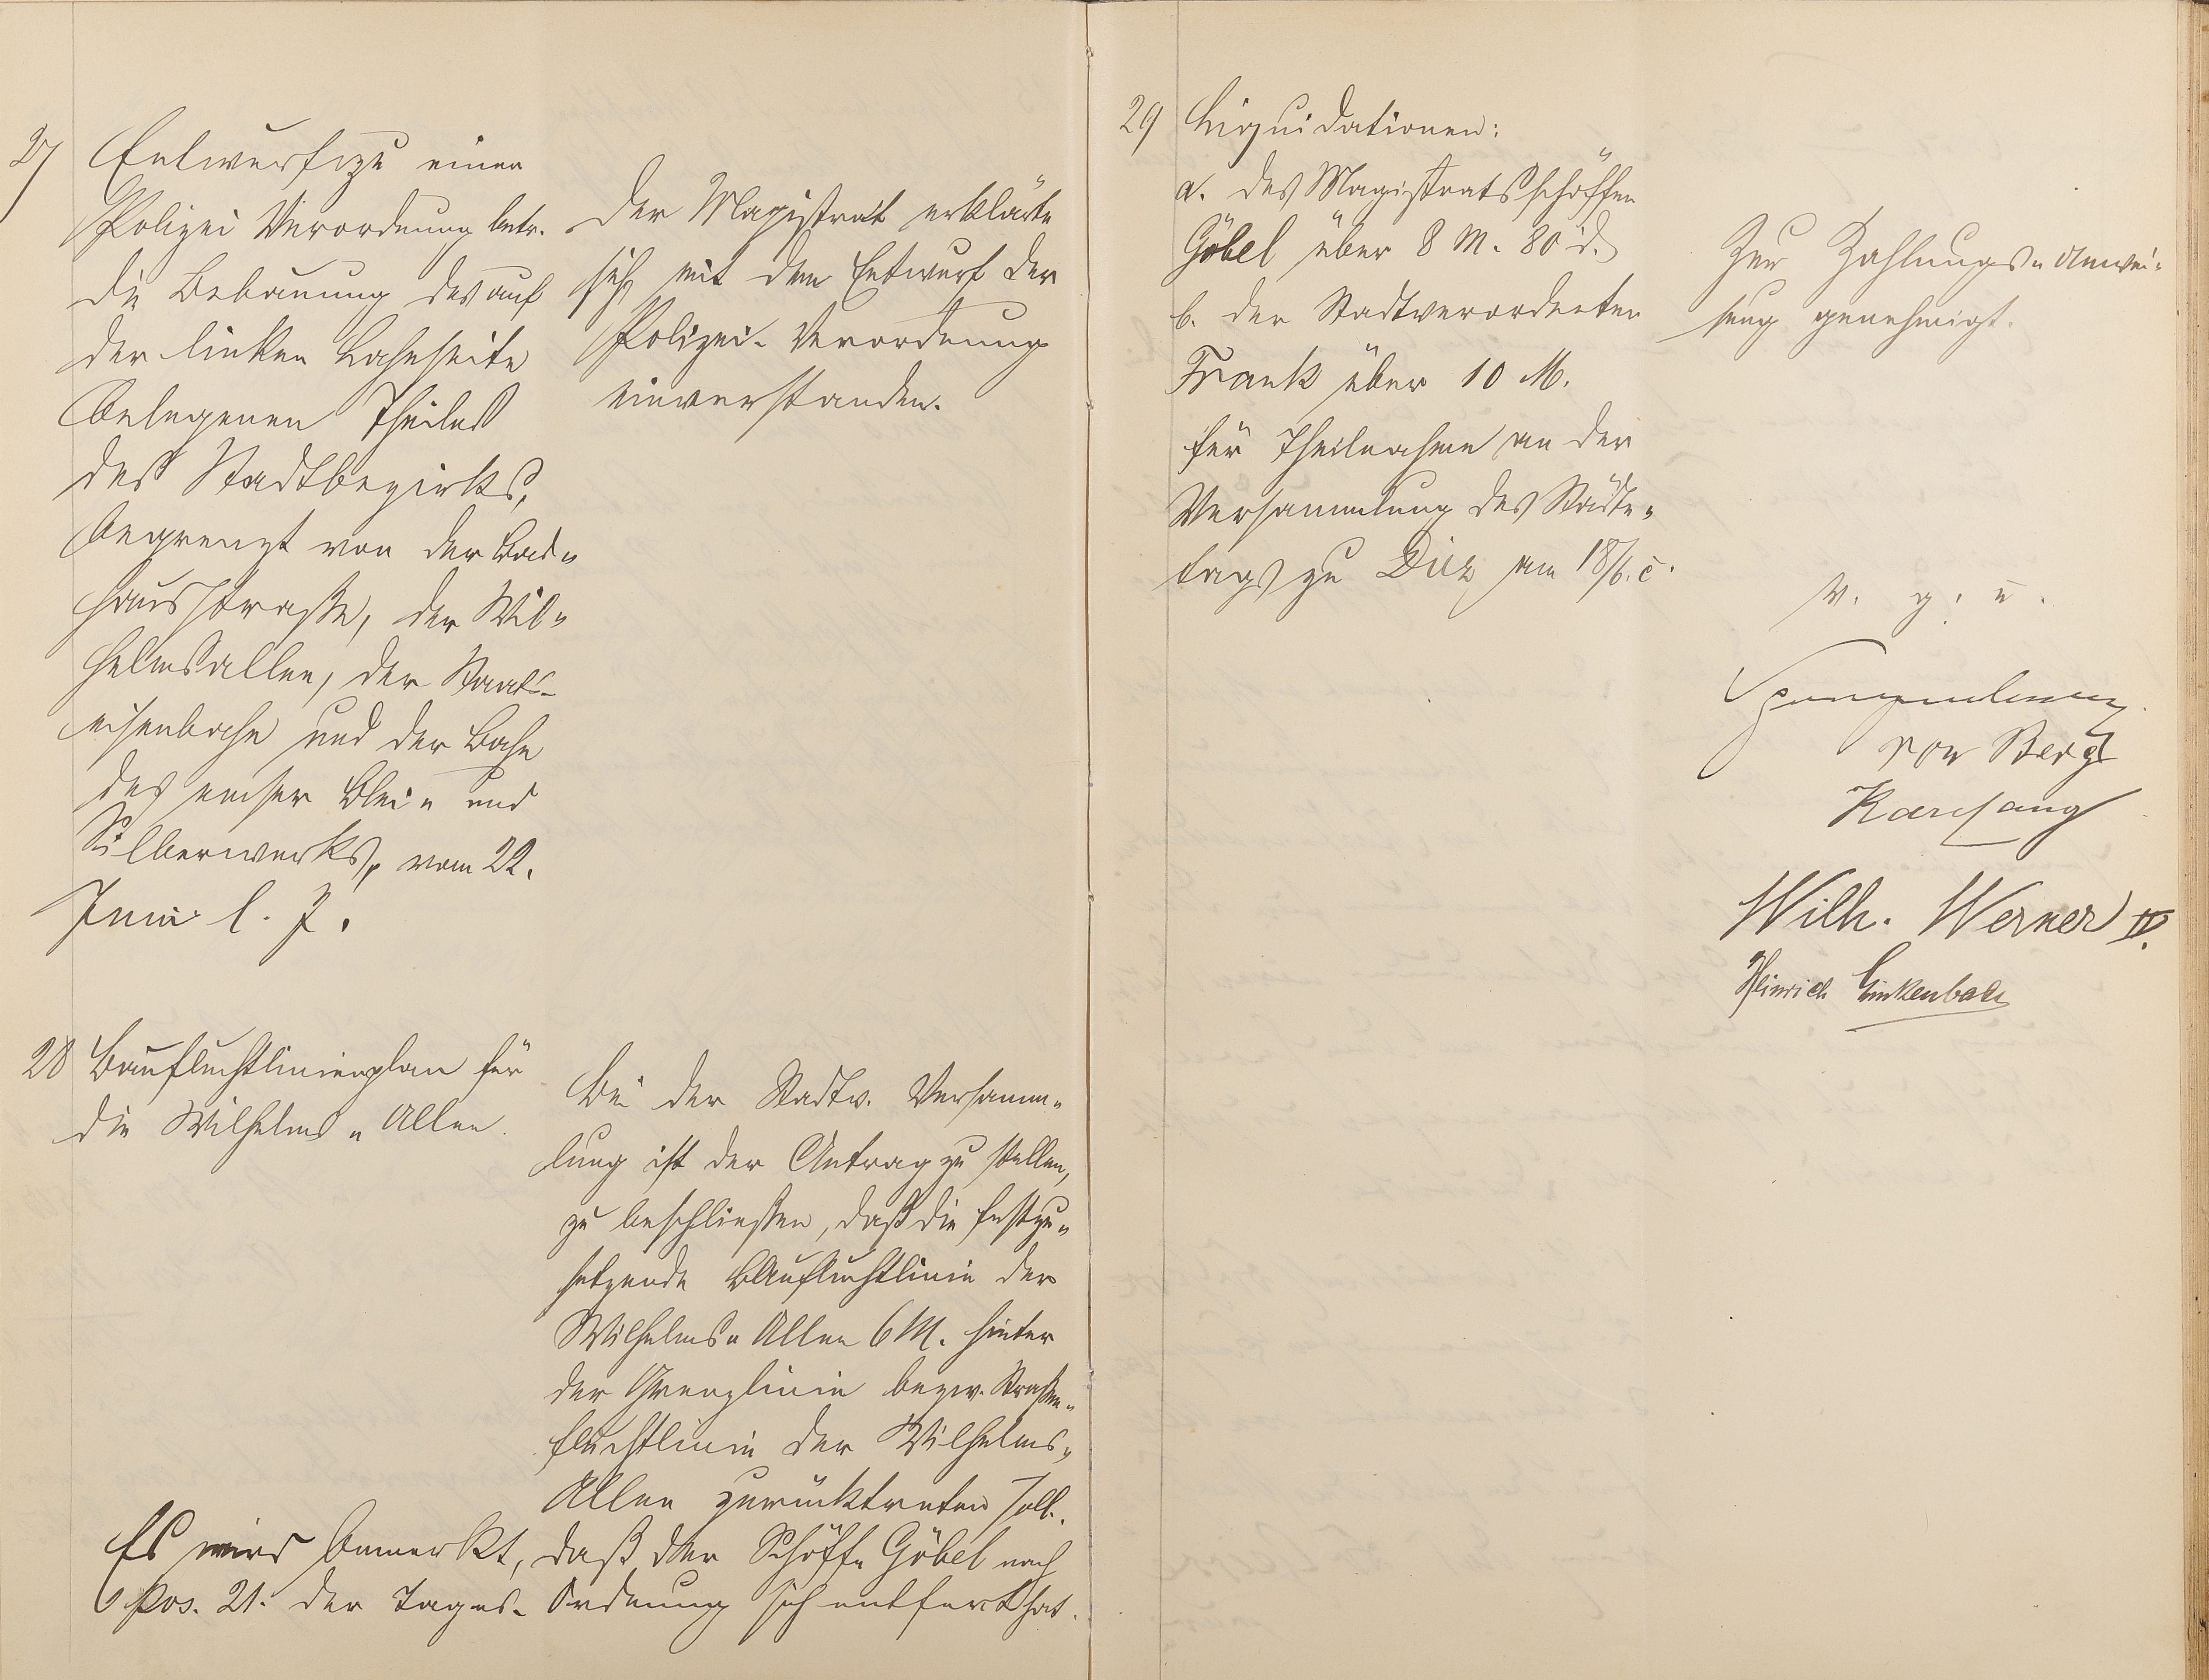 27 Entwurf zu einer
Polizei Verordnung betr.
die Bebauung des auf
der linken Lahnseite
belegenen Theiles
des Stadtbezirks,
begrenzt von der Bad-
hausstraße, der Wil-
helmsallee, der Staats-
eisenbahn und der Bahn
des emser Blei- und
Silberwerks, vom 22.
Juni l. J.
Der Magistrat erklärte
sich mit dem Entwurf der
Polizei-Verordnung
einverstanden.
28 Baufluchtlinienplan für
die Wilhelms-Allee.
Bei der Stadtv. Versamm-
lung ist der Antrag zu stellen,
zu beschließen, daß die festzu-
setzende Baufluchtlinie der
Wilhelms-Allee 6 M. hinter
der Grenzlinie bezw. Straßen-
fluchtlinie der Wilhelms-
Allee zurücktreten soll.
Es wird bemerkt, daß der Schöffe Göbel nach
Pos. 21. der Tages-Ordnung sich entfernt hat.
29 Liquidationen:
a. des Magistratsschöffen
Göbel über 8 M. 80 d.
b. der Stadtverordneten
Frank über 10 M.
für Theilnahme an der
Versammlung des Städte-
tags zu Diez am 18/6. c.
Zur Zahlungs-Anwei-
sung genehmigt.
v. g. u.
Spangenberg
von Berg
Wilh. Werner IV.
Heinrich Linkenbach